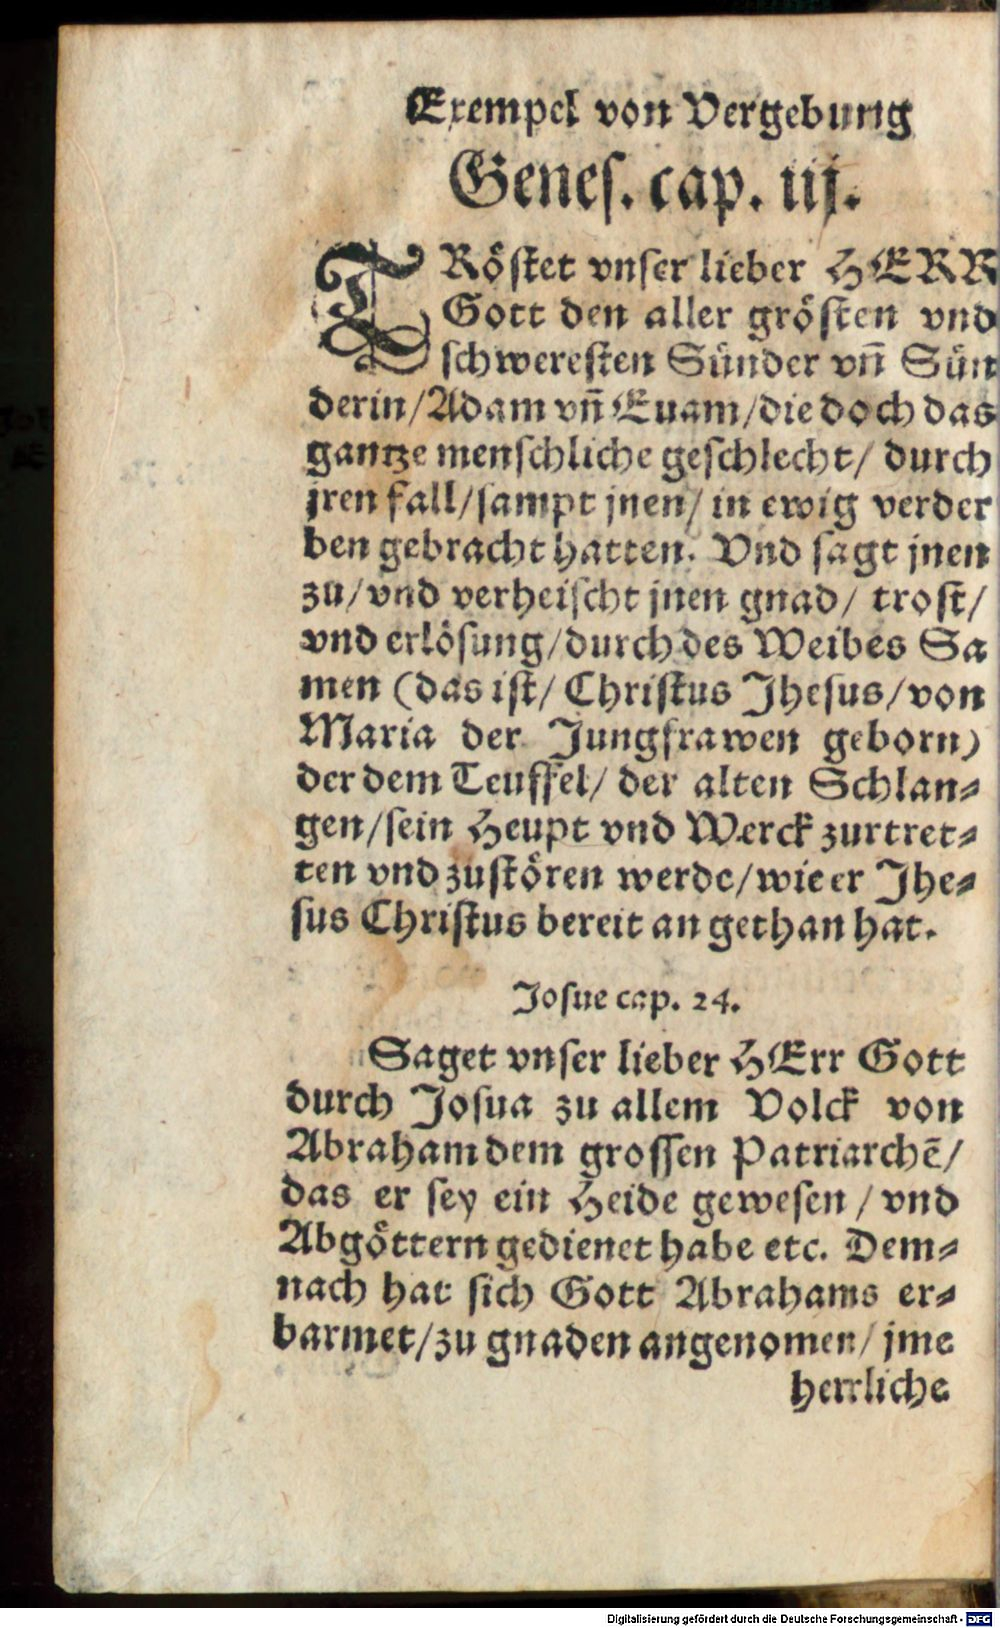 Exempel von Vergebung
Genes. cap. iij.
TRöstet vnser lieber HERR
Gott den aller grösten vnd
schweresten Sünder vn̄ Sün
derin/Adam vn̄ Euam/die doch das
gantze menschliche geschlecht/ durch
jren fall/sampt jnen/ in ewig verder
ben gebracht hatten. Vnd sagt jnen
zu/vnd verheischt jnen gnad/ trost/
vnd erlösung/durch des Weibes Sa
men (das ist/ Christus Jhesus/von
Maria der Jungfrawen geborn)
der dem Teuffel/ der alten Schlan-
gen/sein Heupt vnd Werck zurtret-
ten vnd zustören werde/wie er Jhe-
sus Christus bereit an gethan hat.
Josue cap. 24.
Saget vnser lieber HErr Gott
durch Josua zu allem Volck von
Abraham dem grossen Patriarchē/
das er sey ein Heide gewesen / vnd
Abgöttern gedienet habe etc. Dem-
nach hat sich Gott Abrahams er-
barmet/zu gnaden angenomen/ jme
herrliche
Digitalisierung gefördert durch die Deutsche Forschungsgemeinschaft - DFG